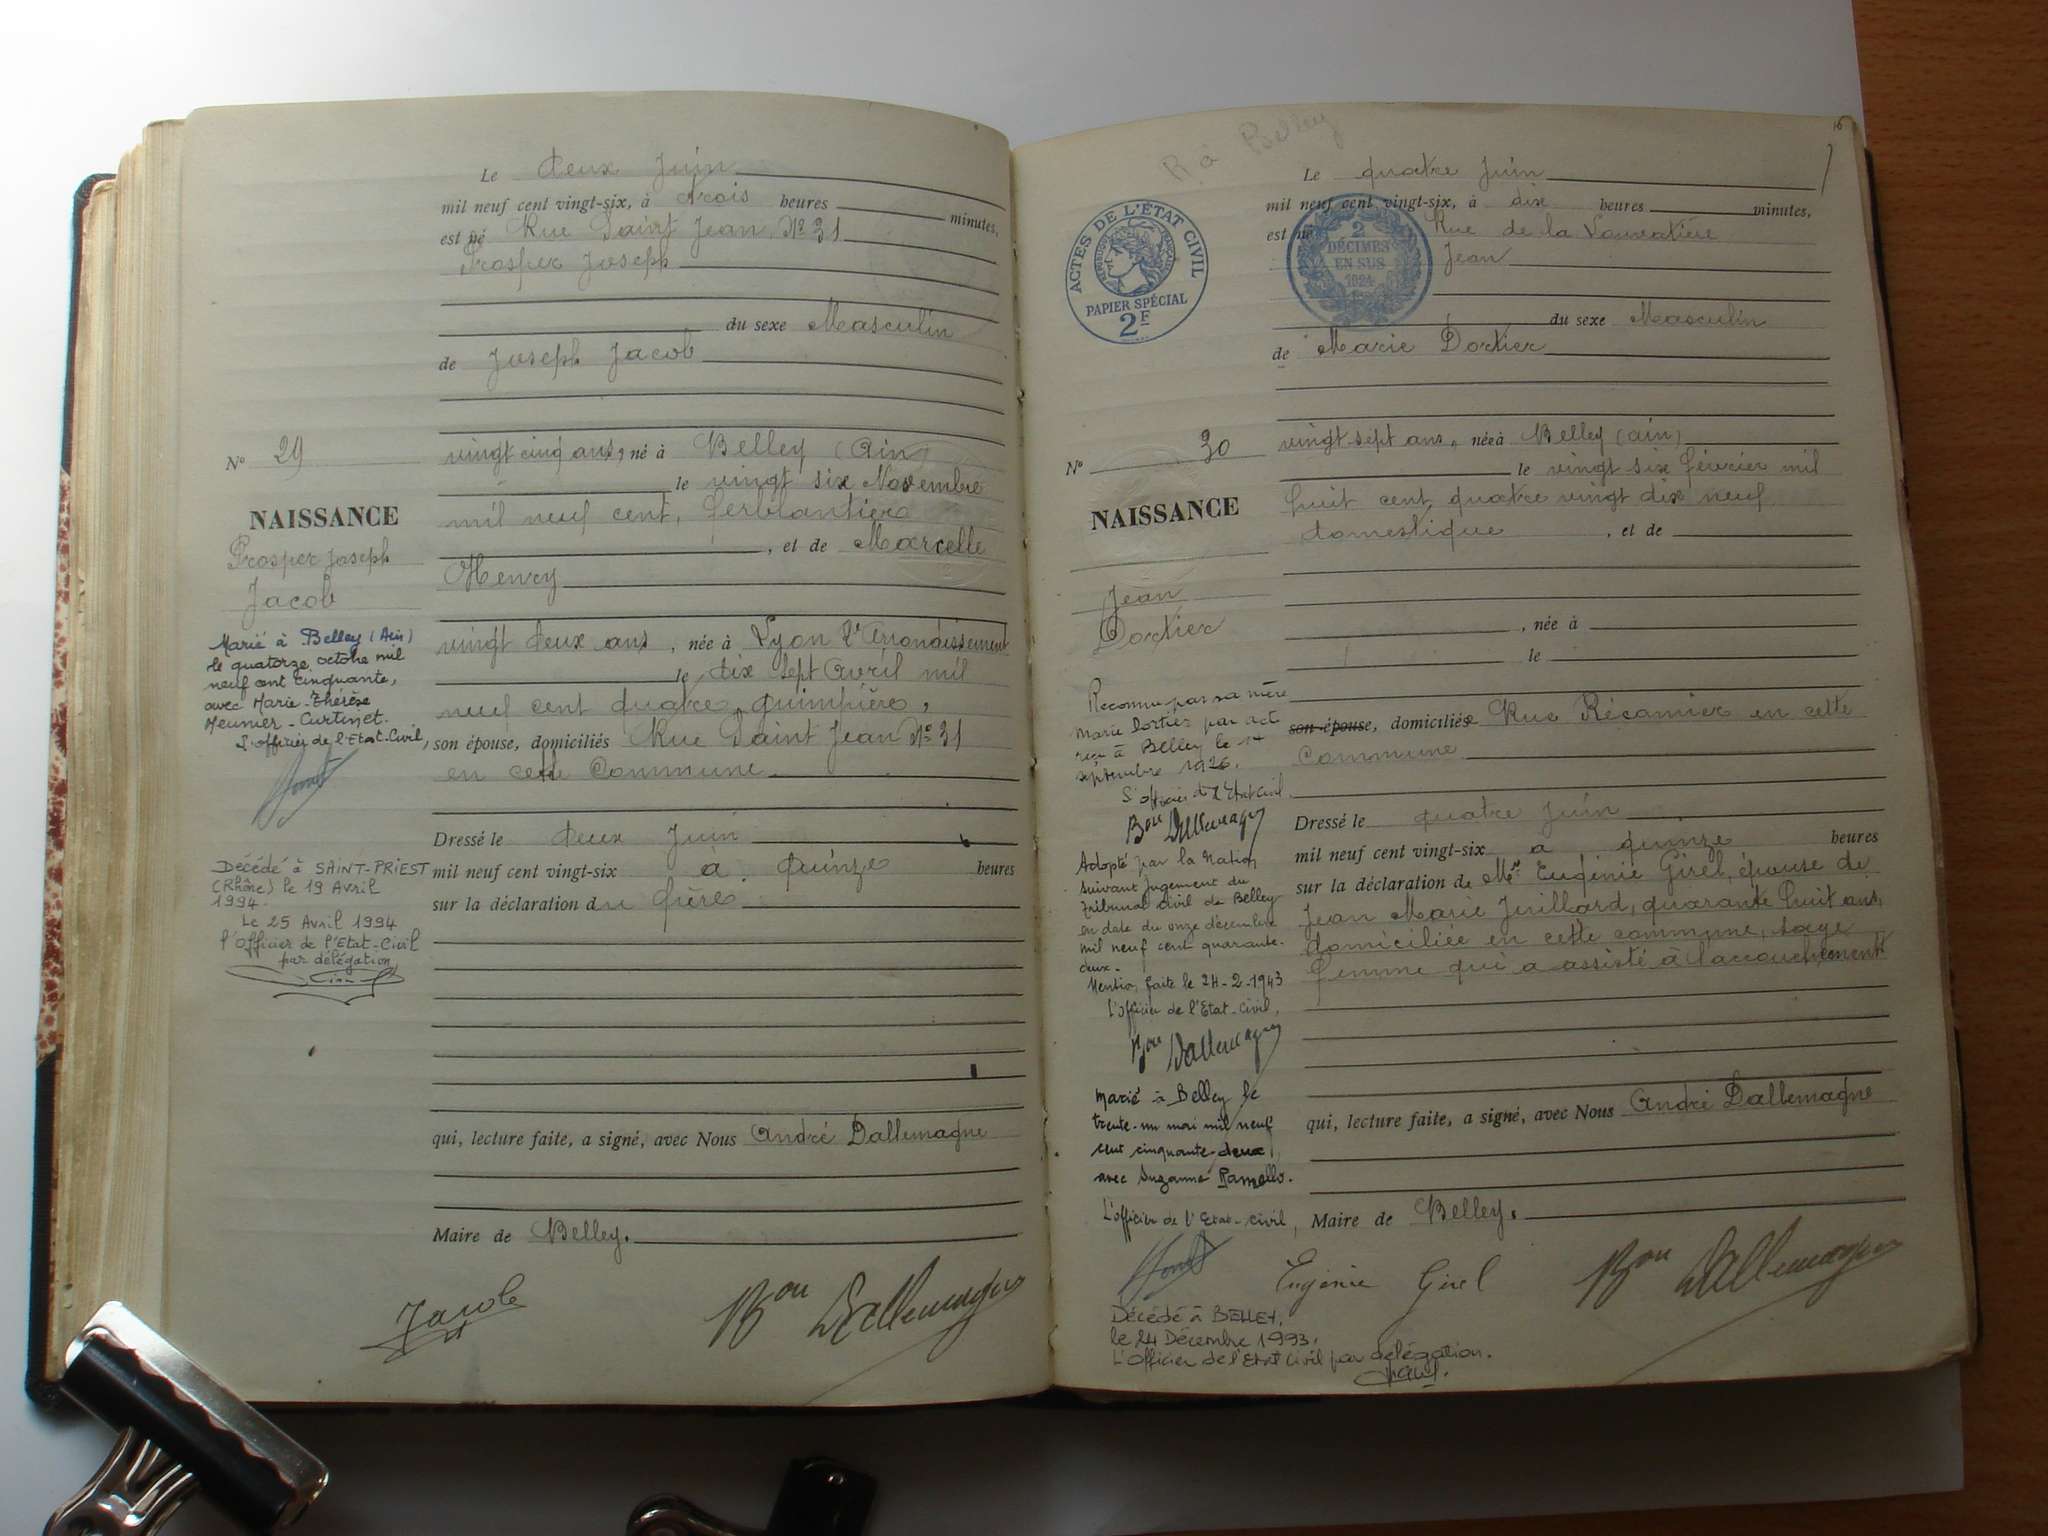 Le deux Juin
mil neuf cent vingt-six, à trois heures minutes,
est né Rue Saint Jean N° 31
Prosper Joseph
du sexe Masculin
de Joseph Jacob
N° 29
vingt cinq ans, né à Belley (Ain)
le vingt six Novembre
mil neuf cent, ferblantier
, et de Marcelle
Henry
vingt deux ans, née à Lyon 2e Arrondissement
le dix sept avril mil
neuf cent quatre, guimpière,
son épouse, domiciliés Rue Saint Jean N° 31
en cette Commune
Dressé le deux Juin
mil neuf cent vingt-six à quinze heures
sur la déclaration du père
qui, lecture faite, a signé, avec Nous André Dallemagne
Maire de Belley.
Jacob
Bon Dallemagne
NAISSANCE
Prosper Joseph
Jacob
Marié à Belley (Ain)
le quatorze octobre mil
neuf cent cinquante,
avec Marie-Thérèse
Meunier-Curtinet.
L'officier de l'Etat-Civil,
Décédé à SAINT-PRIEST
(Rhône) le 19 Avril
1994.
Le 25 Avril 1994
l'Officier de l'Etat-Civil
par délégation
R à Belley
16
ACTES DE L'ÉTAT CIVIL
PAPIER SPÉCIAL
2F
2
DÉCIMES
EN SUS
1924
Le quatre Juin
mil neuf cent vingt-six, à dix heures minutes,
est né Rue de la
Jean
du sexe Masculin
de Marie Dortier
N° 30
vingt sept ans, née à Belley (ain)
le vingt six février mil
huit cent quatre vingt dix neuf
domestique, et de
, née à
le
son épouse, domiciliée Rue Récamier en cette
Commune
Dressé le quatre Juin
mil neuf cent vingt-six à quinze heures
sur la déclaration de Me Eugénie Girel, épouse de
Jean Marie Juillard, quarante huit ans,
domiciliée en cette commune, sage
femme qui a assisté à l'accouchement
qui, lecture faite, a signé, avec Nous André Dallemagne
Maire de Belley.
Eugénie Girel
Bon Dallemagne
NAISSANCE
Jean
Dortier
Reconnu par sa mère
Marie Dortier par acte
reçu à Belley le
septembre 1926.
L'officier de l'Etat Civil
Bon Dallemagne
Adopté par la Nation
suivant jugement du
tribunal civil de Belley
en date du onze décembre
mil neuf cent quarante-
deux.
Mention faite le 24-2-1943
L'officier de l'Etat-Civil,
Bon Dallemagne
Marié à Belley le
trente-un mai mil neuf
cent cinquante-deux,
avec Suzanne Ramello.
L'officier de l'Etat-Civil,
Décédé à BELLEY,
le 24 Décembre 1993.
L'Officier de l'Etat Civil par délégation.